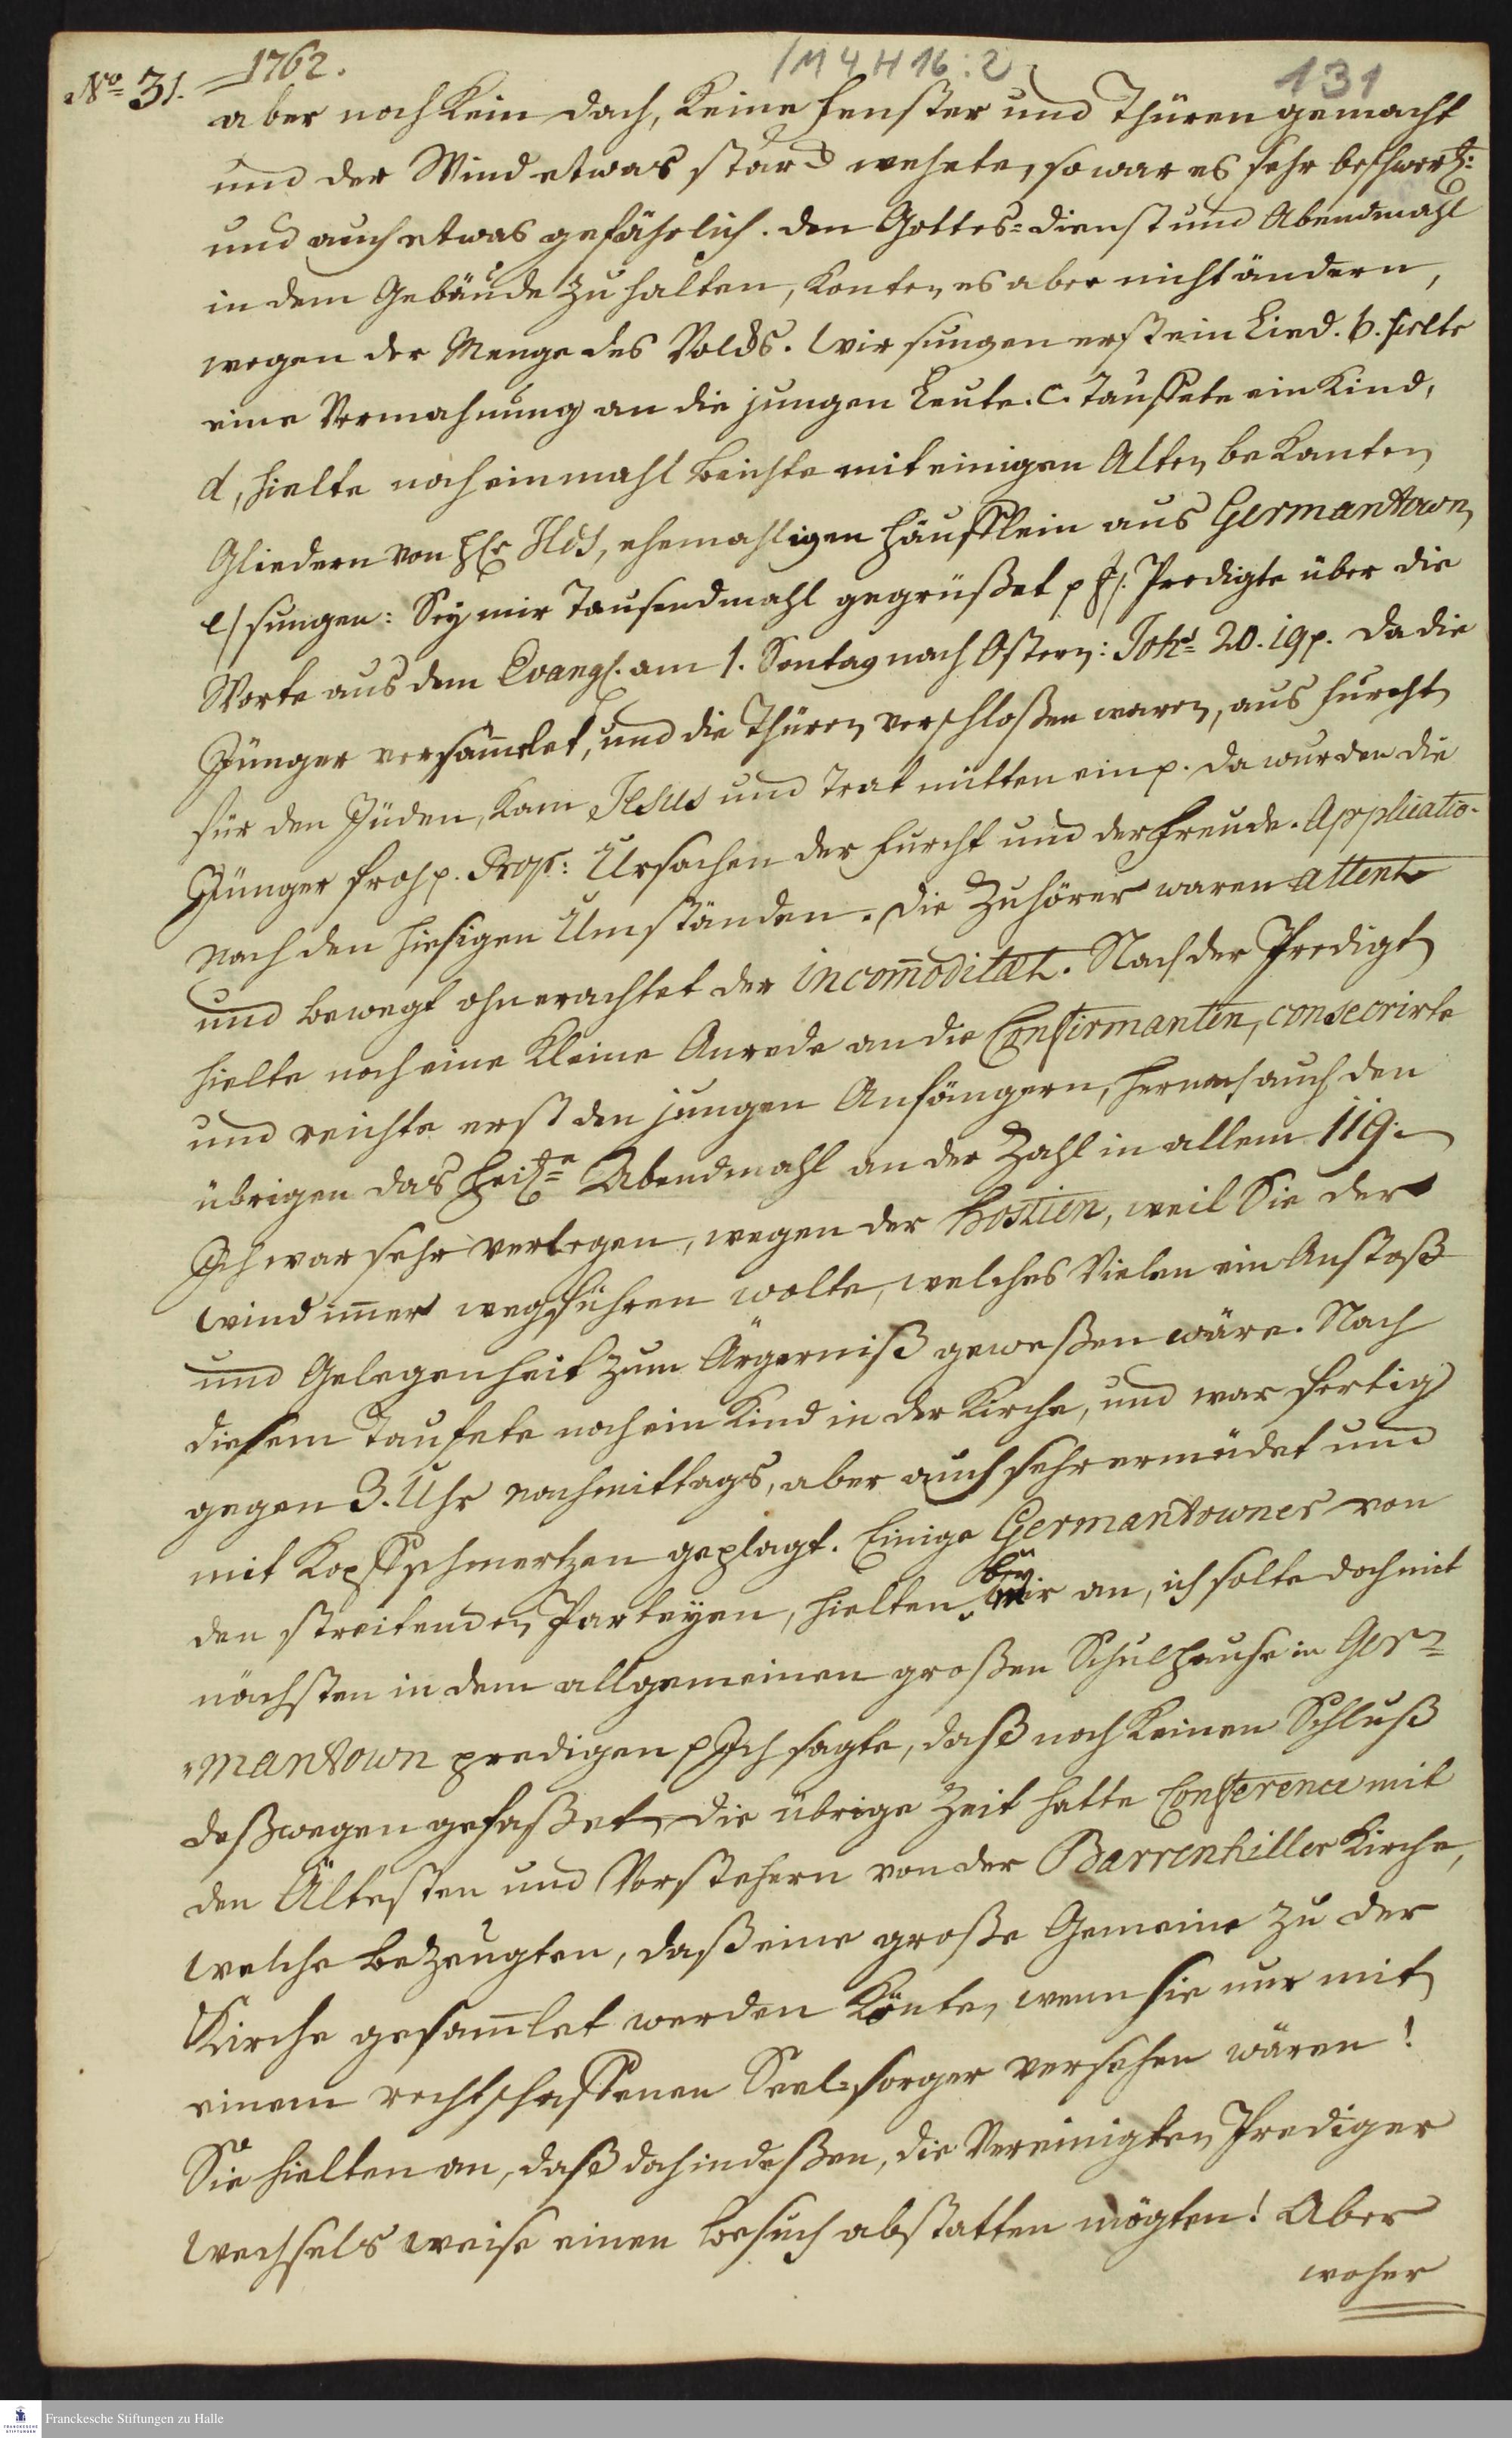 No= 31. 1762. / M 4 H 16 : 2 131
aber noch kein dach, keine fenster und Thüren gemacht
und der Wind etwas starck wehete, so war es sehr beschwerl:
und auch etwas gefährlich. den Gottes=dienst und Abendmahl
in dem Gebäude zu halten, konte es aber nicht ändern,
wegen der Menge des Volcks. Wir sungen erst ein Lied. b. hielte
eine Vermahnung an die jungen Leute. c. Tauffete ein Kind,
d, hielte noch einmahl beichte mit einigen Alten bekanten
Gliedern von ehemahligen häufflein aus Germantown,
e/ sungen: Sey mir Tausendmahl gegrüßet p f/. Predigte über die
Worte aus dem Evangl. am 1. Sontag nach Ostern: Joh= 20. 19 p. da die
Jünger versam̄let, und die Thüren verschloßen waren, aus furcht
für den Jüden, kam Jesus und trat mitten ein p. da wurden die
Jünger froh p. Prop: Ursachen der furcht und der freude. Applicatio.
nach den hiesigen Umständen. die Zuhörer waren attent
und bewegt ohnerachtet der incom̄oditæt. Nach der Predigt
hielte noch eine kleine Anrede an die Confirmanten, consecrirte
und reichte erst den jungen Anfängern, hernach auch den
übrigen das heil= Abendmahl an der Zahl in allem 119.
Ich war sehr verlegen, wegen der Hostien, weil Sie der
Wind im̄er wegführen wolte, welches Vielen ein Anstoß
und Gelegenheit zum Ärgerniß geweßen wäre. Nach
diesem Taufete noch ein Kind in der Kirche, und war fertig
gegen 3. Uhr nachmittags, aber auch sehr ermüdet und
mit Kopffschmertzen geplagt. Einige Germantowner von
den streitenden Parteyen, hielten bey mir an, ich solte doch mit
nächsten in dem allgemeinen großen Schulhause in Ger=
=mantown predigen p Ich sagte, daß noch keinen Schluß
deßwegen gefaßet, die übrige Zeit hatte Conference mit
den Ältesten und Vorstehern von der Barrenhiller Kirche,
welche bezeugten, daß eine große Gemeine zu der
Kirche gesam̄let werden könte, wenn sie nur mit
einem rechtschaffenen Seel=sorger versehen wären!
Sie hielten an, daß doch indeßen, die Vereinigten Prediger
wechsels weise einen besuch abstatten mögten! Aber
woher
Franckesche Stiftungen zu Halle